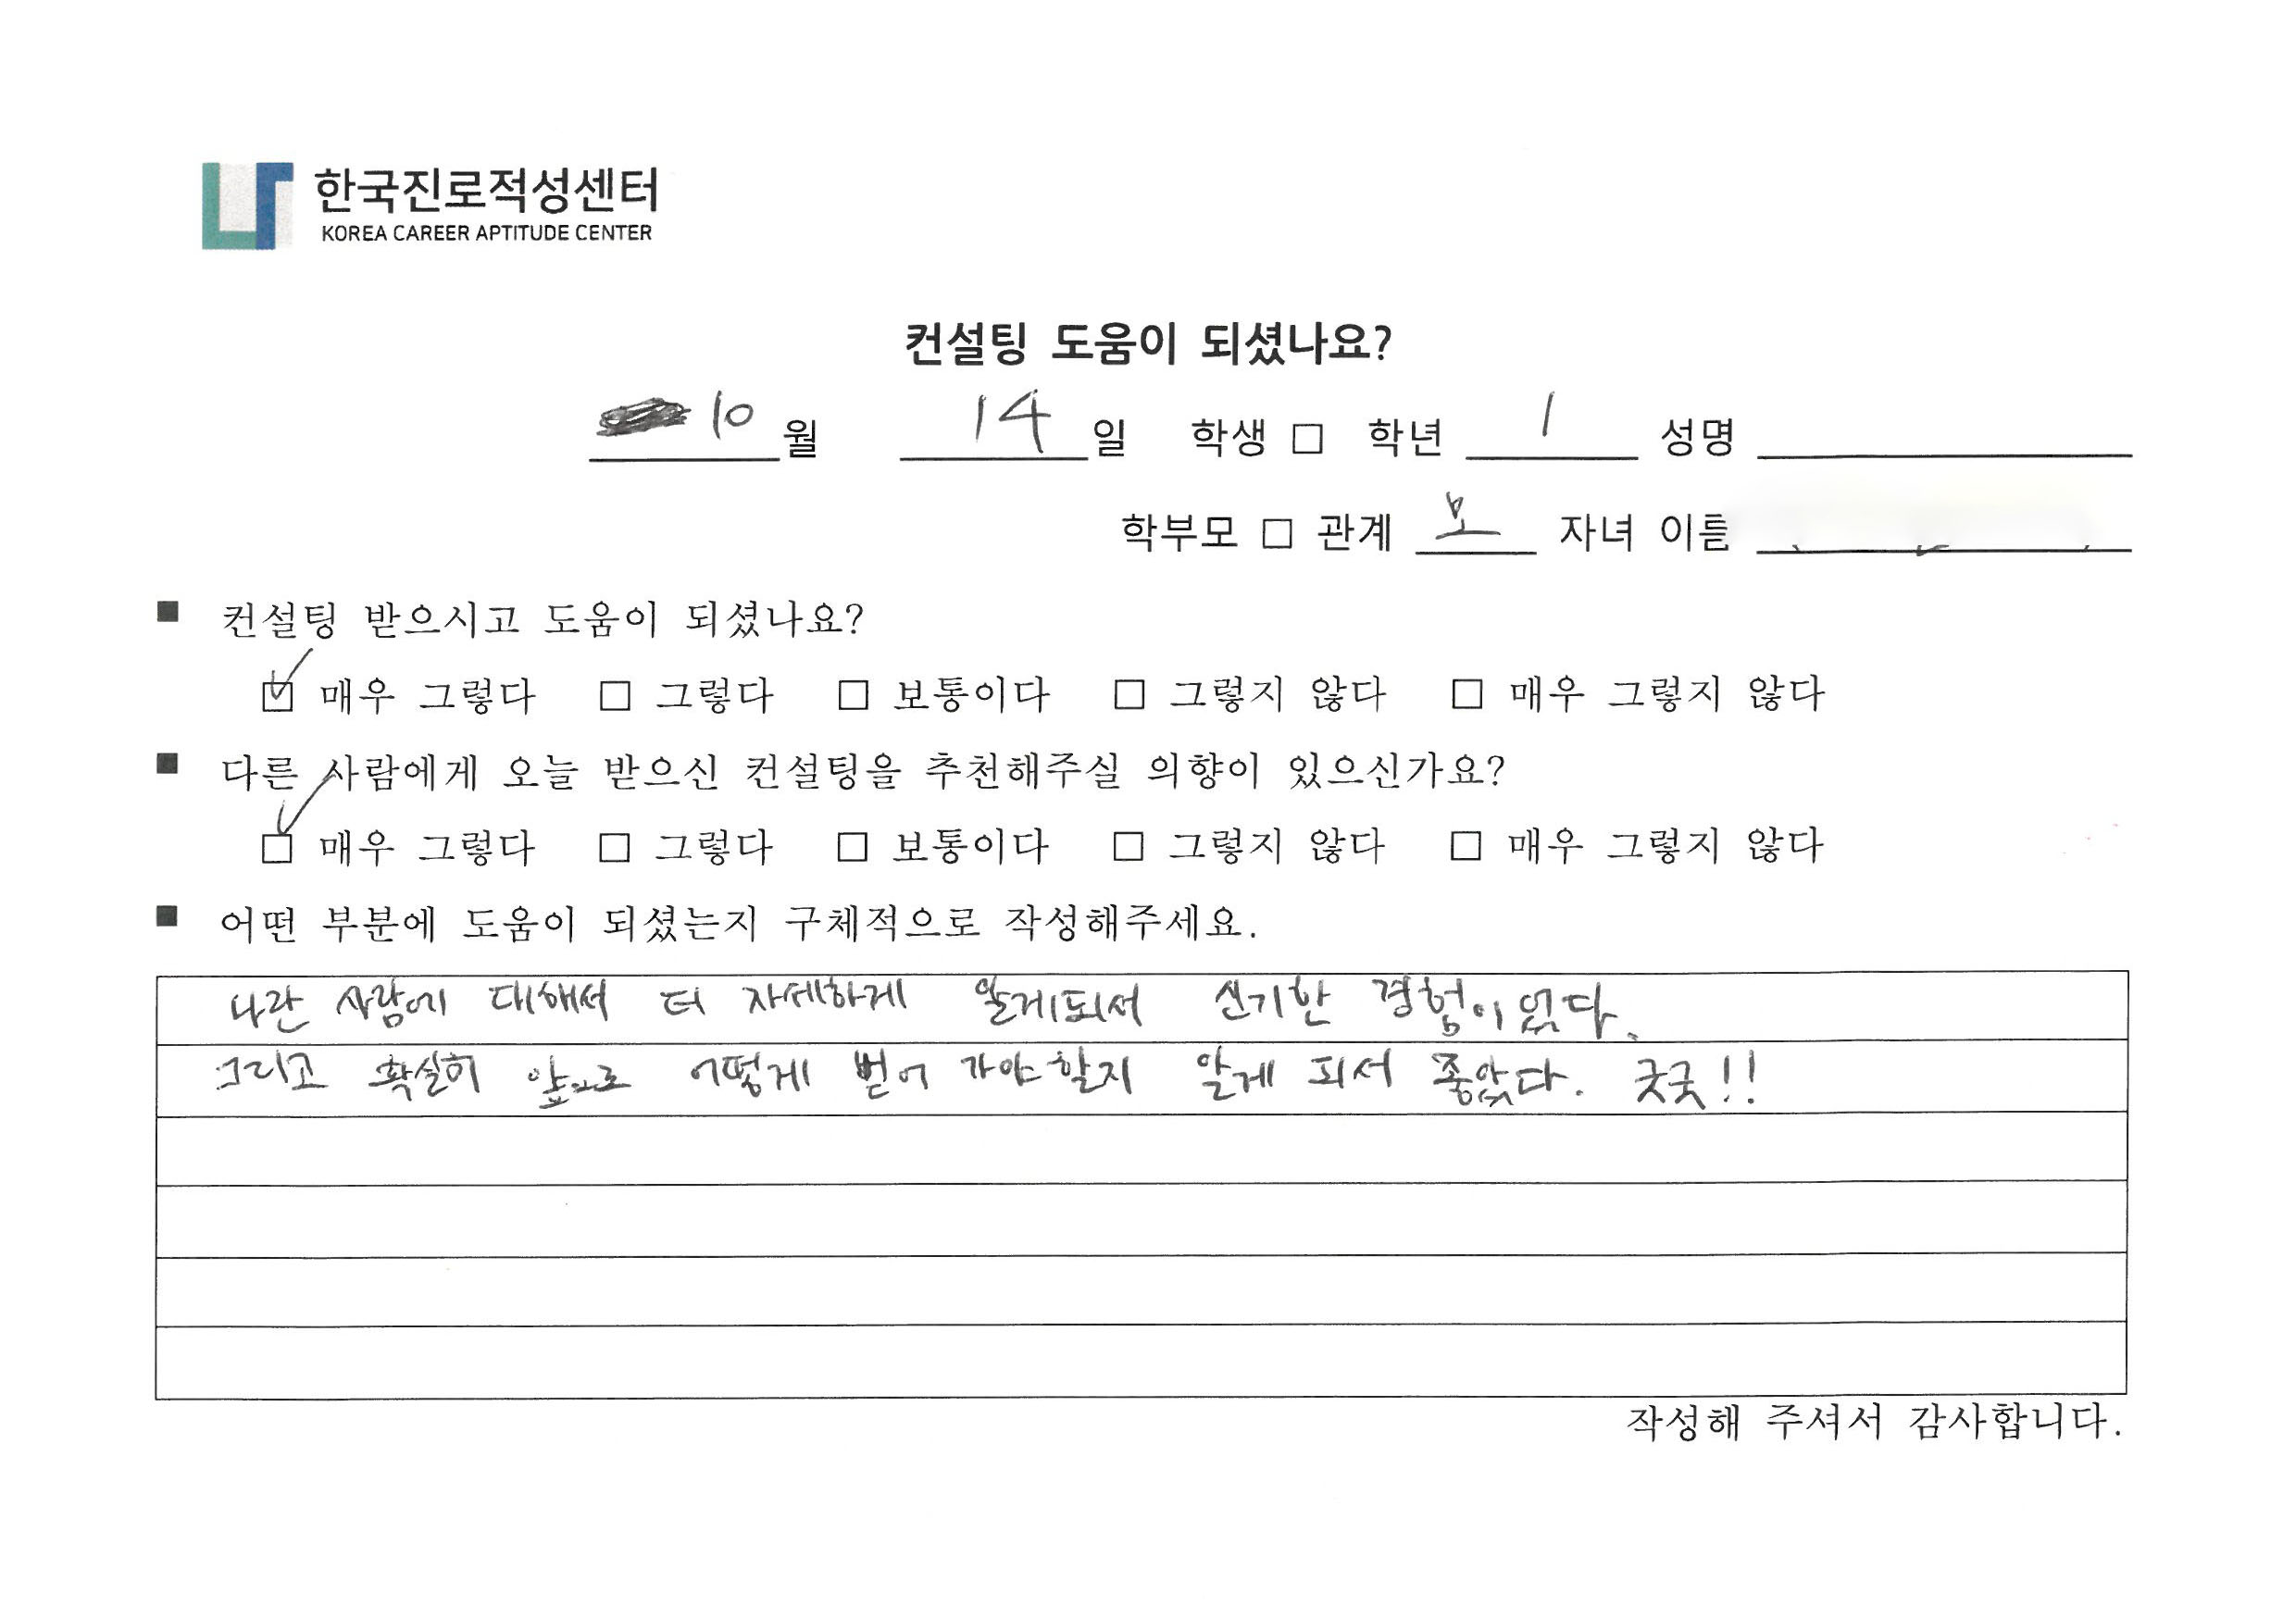 한국진로적성센터
KOREA CAREER APTITUDE CENTER
컨설팅 도움이 되셨나요?
10 월 14 일 학생 □ 학년 1 성명
학부모 □ 관계 모 자녀 이름
■ 컨설팅 받으시고 도움이 되셨나요?
☑ 매우 그렇다 □ 그렇다 □ 보통이다 □ 그렇지 않다 □ 매우 그렇지 않다
■ 다른 사람에게 오늘 받으신 컨설팅을 추천해주실 의향이 있으신가요?
☑ 매우 그렇다 □ 그렇다 □ 보통이다 □ 그렇지 않다 □ 매우 그렇지 않다
■ 어떤 부분에 도움이 되셨는지 구체적으로 작성해주세요.
나란 사람에 대해서 더 자세하게 알게되서 신기한 경험이었다.
그리고 확실히 앞으로 어떻게 벋어 가야할지 알게 되서 좋았다. 굿굿!!
작성해 주셔서 감사합니다.